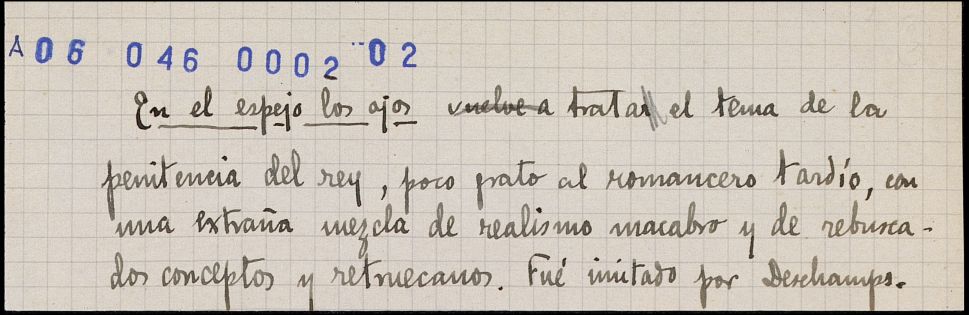 A06 046 0002 02
En el espejo los ojos vuelve a tratar el tema de la
penitencia del rey, poco grato al romancero tardío, con
una extraña mezcla de realismo macabro y de rebusca-
dos conceptos y retruecanos. Fué imitado por Deschamps.